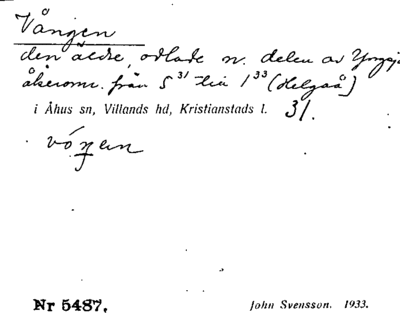 Vången
den äldre, odlade n. delen av Yngsjö
åkeromr. från 5³¹ till 1³³ (Helgaå)
i Åhus sn, Villands hd, Kristianstads l. 31.
vóŋen
Nr 5487. John Svensson. 1933.